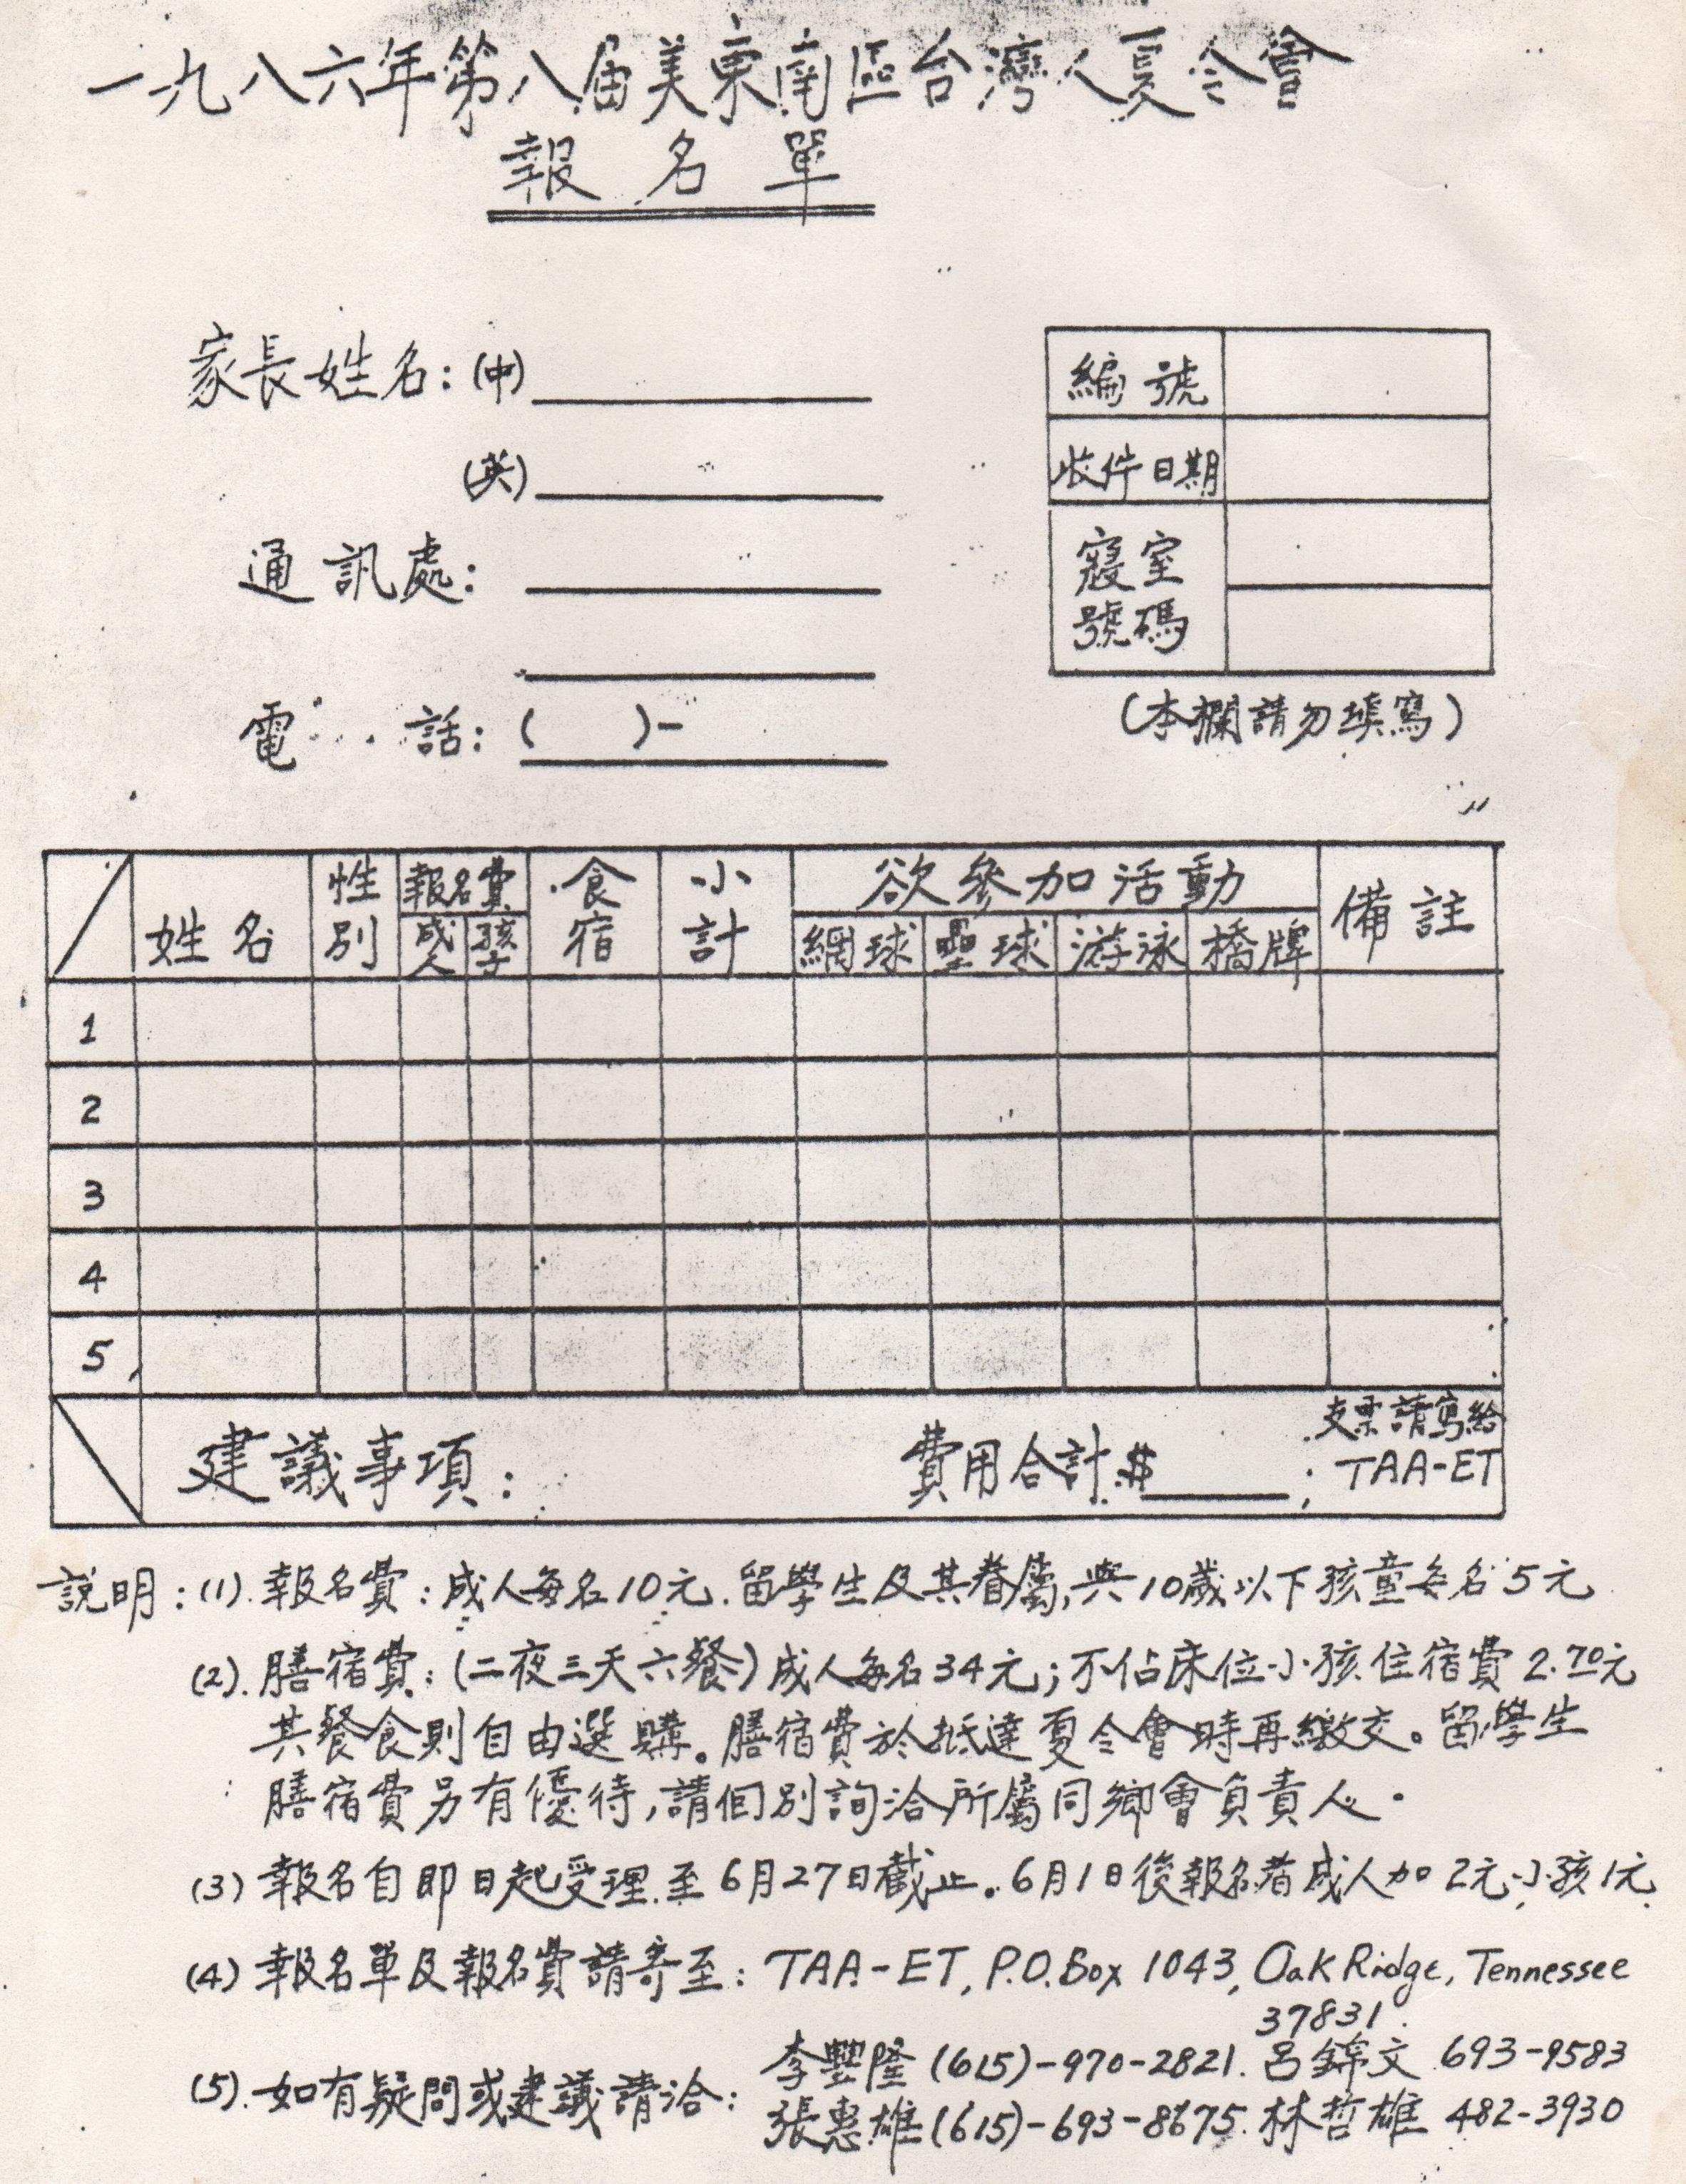 一九八六年第八届美東南區台灣人夏令會
報名單
家長姓名：(中)
(英)
通訊處：
電話：(　　)-
編號
收件日期
寢室
號碼
(本欄請勿填寫)
姓名 性別 報名費 食宿 小計 欲參加活動 備註
成人 孩子 網球 壘球 游泳 橋牌
1
2
3
4
5
建議事項： 費用合計 $ ; 支票請寫給 TAA-ET
說明：(1). 報名費：成人每名10元. 留學生及其眷屬, 與10歲以下孩童每名5元
(2). 膳宿費：(二夜三天六餐) 成人每名34元；不佔床位小孩住宿費 2.70元
其餐食則自由選購。膳宿費於抵達夏令會時再繳交。留學生
膳宿費另有優待, 請個別詢洽所屬同鄉會負責人.
(3) 報名自即日起受理. 至6月27日截止。6月1日後報名者成人加2元小孩1元
(4) 報名單及報名費請寄至：TAA-ET, P.O.Box 1043, Oak Ridge, Tennessee
37831.
(5). 如有疑問或建議請洽：李豐隆 (615)-970-2821. 呂錦文 693-9583
張惠雄 (615)-693-8675. 林哲雄 482-3930